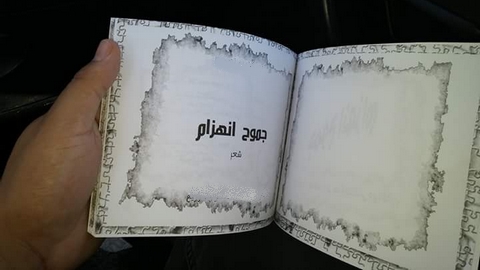 جموح انهزام
شعر